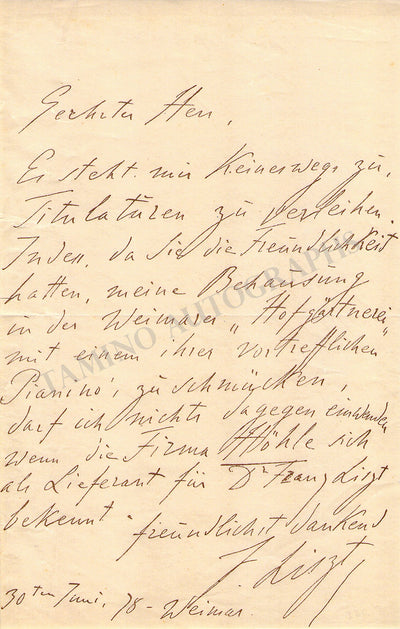 Geehrter Herr,
Es steht mir keineswegs zu,
Titulaturen zu verleihen.
Indess, da Sie die Freundlichkeit
hatten, meine Behausung
in der Weimarer „Hofgärtnerei"
mit einem ihrer vortrefflichen
Pianino's zu schmücken,
darf ich nichts dagegen einwenden
wenn die Firma Höhle sich
als Lieferant für Dr Franz Liszt
bekennt
freundlichst dankend
F. Liszt,
30ten Juni, 78 - Weimar.
TAMINO AUTOGRAPHS